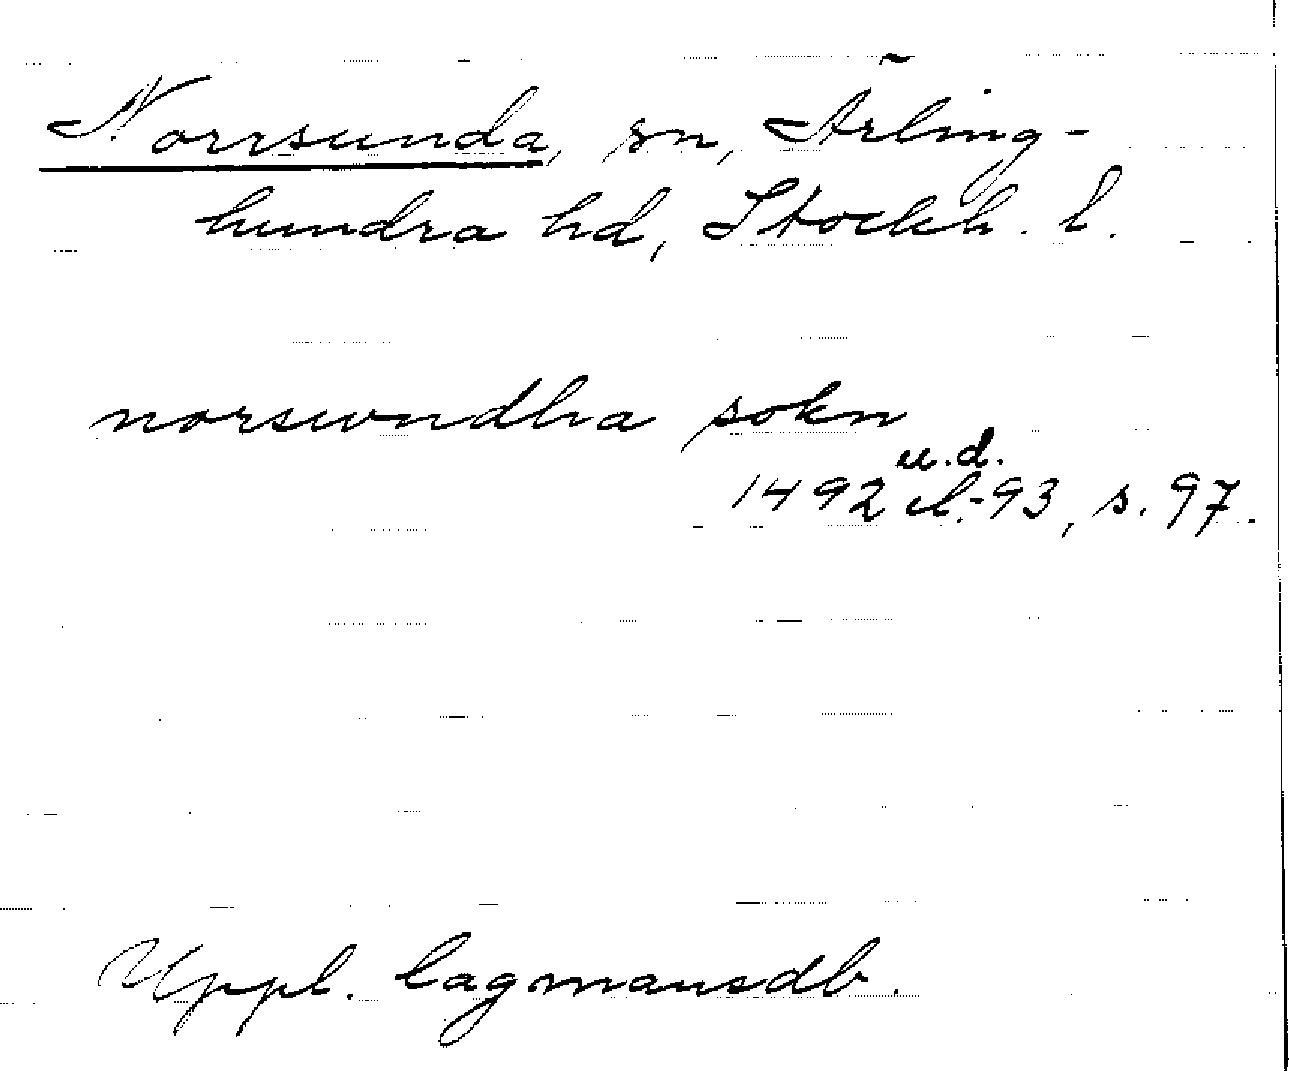 Norrsunda, sn, Ärling-
hundra hd, Stockh. l.
norswndha sokn
u.d.
1492 el.-93, s. 97.
Uppl. lagmansdb.